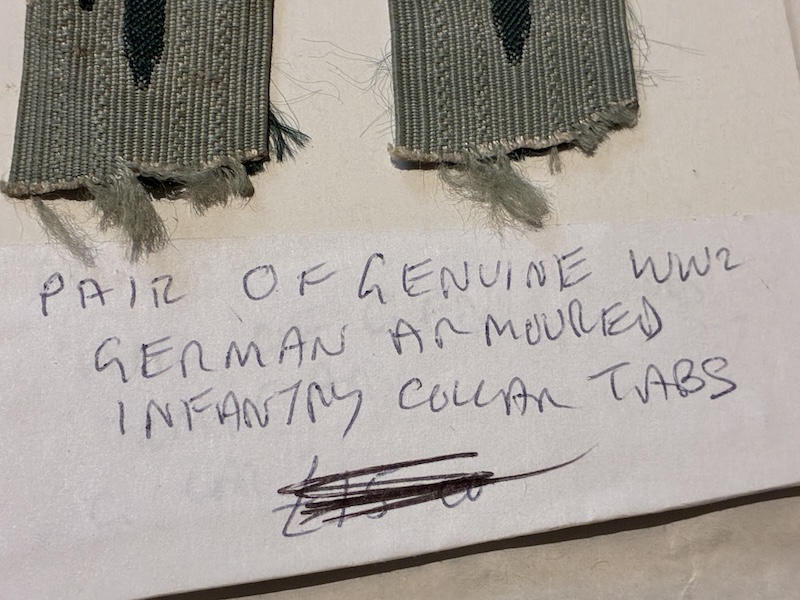 PAIR OF GENUINE WW2
GERMAN ARMOURED
INFANTRY COLLAR TABS